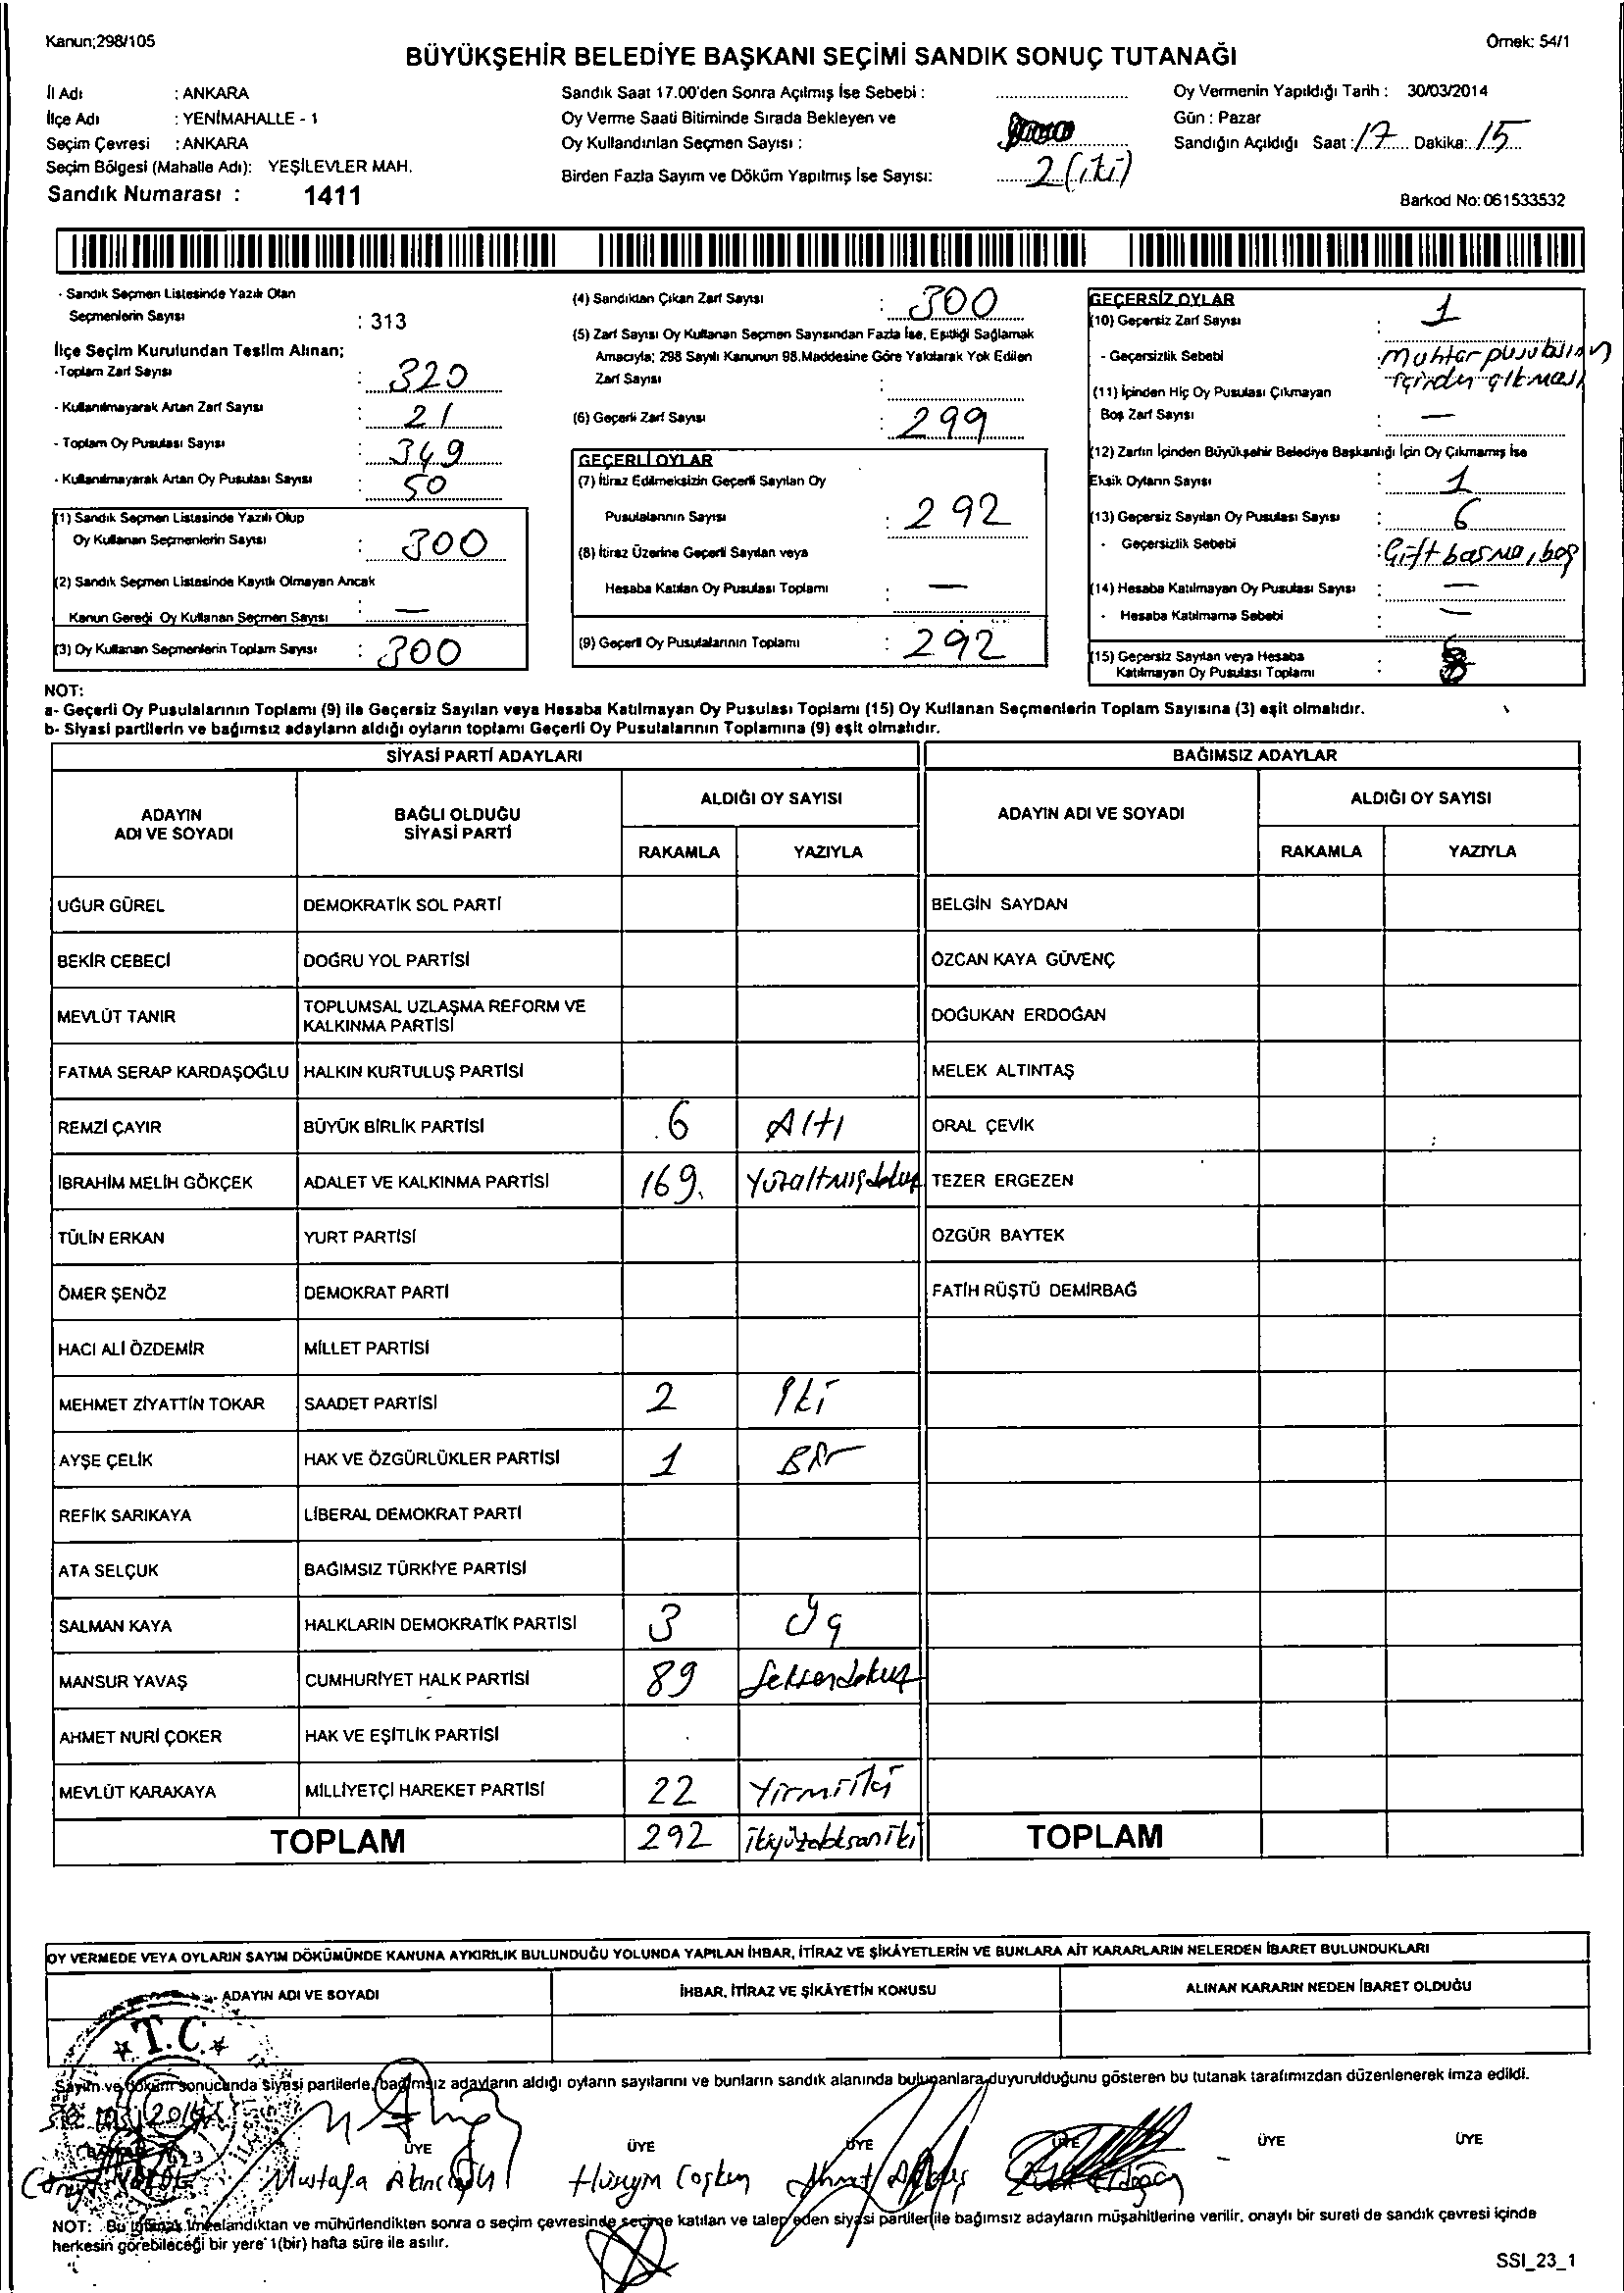 Kanun;298/105
Örnek: 54/1
BÜYÜKŞEHİR BELEDİYE BAŞKANI SEÇİMİ SANDIK SONUÇ TUTANAĞI
İl Adı : ANKARA
İlçe Adı : YENİMAHALLE - 1
Seçim Çevresi : ANKARA
Seçim Bölgesi (Mahalle Adı): YEŞİLEVLER MAH.
Sandık Numarası : 1411
Sandık Saat 17.00'den Sonra Açılmış İse Sebebi :
Oy Verme Saati Bitiminde Sırada Bekleyen ve
Oy Kullandırılan Seçmen Sayısı :
Birden Fazla Sayım ve Döküm Yapılmış İse Sayısı: 2 (iki)
Oy Vermenin Yapıldığı Tarih : 30/03/2014
Gün : Pazar
Sandığın Açıldığı Saat : 17 Dakika: 15
Barkod No: 061533532
- Sandık Seçmen Listesinde Yazılı Olan
Seçmenlerin Sayısı : 313
İlçe Seçim Kurulundan Teslim Alınan;
-Toplam Zarf Sayısı : 320
- Kullanılmayarak Artan Zarf Sayısı : 21
- Toplam Oy Pusulası Sayısı : 349
- Kullanılmayarak Artan Oy Pusulası Sayısı : 50
(1) Sandık Seçmen Listesinde Yazılı Olup
Oy Kullanan Seçmenlerin Sayısı : 300
(2) Sandık Seçmen Listesinde Kayıtlı Olmayan Ancak
Kanun Gereği Oy Kullanan Seçmen Sayısı : —
(3) Oy Kullanan Seçmenlerin Toplam Sayısı : 300
(4) Sandıktan Çıkan Zarf Sayısı : 300
(5) Zarf Sayısı Oy Kullanan Seçmen Sayısından Fazla İse, Eşitliği Sağlamak
Amacıyla; 298 Sayılı Kanunun 98.Maddesine Göre Yakılarak Yok Edilen
Zarf Sayısı :
(6) Geçerli Zarf Sayısı : 299
GEÇERLİ OYLAR
(7) İtiraz Edilmeksizin Geçerli Sayılan Oy
Pusulalarının Sayısı : 292
(8) İtiraz Üzerine Geçerli Sayılan veya
Hesaba Katılan Oy Pusulası Toplamı : —
(9) Geçerli Oy Pusulalarının Toplamı : 292
GEÇERSİZ OYLAR
(10) Geçersiz Zarf Sayısı : 1
- Geçersizlik Sebebi : Muhtar pusulasının
içinden çıkması
(11) İçinden Hiç Oy Pusulası Çıkmayan
Boş Zarf Sayısı : —
(12) Zarfın İçinden Büyükşehir Belediye Başkanlığı İçin Oy Çıkmamış İse
Eksik Oyların Sayısı : 1
(13) Geçersiz Sayılan Oy Pusulası Sayısı : 6
- Geçersizlik Sebebi : Çift basma, boş
(14) Hesaba Katılmayan Oy Pusulası Sayısı : —
- Hesaba Katılmama Sebebi : —
(15) Geçersiz Sayılan veya Hesaba
Katılmayan Oy Pusulası Toplamı :
NOT:
a- Geçerli Oy Pusulalarının Toplamı (9) ile Geçersiz Sayılan veya Hesaba Katılmayan Oy Pusulası Toplamı (15) Oy Kullanan Seçmenlerin Toplam Sayısına (3) eşit olmalıdır.
b- Siyasi partilerin ve bağımsız adayların aldığı oyların toplamı Geçerli Oy Pusulalarının Toplamına (9) eşit olmalıdır.
SİYASİ PARTİ ADAYLARI BAĞIMSIZ ADAYLAR
ADAYIN ADI VE SOYADI BAĞLI OLDUĞU SİYASİ PARTİ ALDIĞI OY SAYISI ADAYIN ADI VE SOYADI ALDIĞI OY SAYISI
RAKAMLA YAZIYLA RAKAMLA YAZIYLA
UĞUR GÜREL DEMOKRATİK SOL PARTİ BELGİN SAYDAN
BEKİR CEBECİ DOĞRU YOL PARTİSİ ÖZCAN KAYA GÜVENÇ
MEVLÜT TANIR TOPLUMSAL UZLAŞMA REFORM VE KALKINMA PARTİSİ DOĞUKAN ERDOĞAN
FATMA SERAP KARDAŞOĞLU HALKIN KURTULUŞ PARTİSİ MELEK ALTINTAŞ
REMZİ ÇAYIR BÜYÜK BİRLİK PARTİSİ 6 Altı ORAL ÇEVİK
İBRAHİM MELİH GÖKÇEK ADALET VE KALKINMA PARTİSİ 169 Yüzaltmışdokuz TEZER ERGEZEN
TÜLİN ERKAN YURT PARTİSİ ÖZGÜR BAYTEK
ÖMER ŞENÖZ DEMOKRAT PARTİ FATİH RÜŞTÜ DEMİRBAĞ
HACI ALİ ÖZDEMİR MİLLET PARTİSİ
MEHMET ZİYATTİN TOKAR SAADET PARTİSİ 2 İki
AYŞE ÇELİK HAK VE ÖZGÜRLÜKLER PARTİSİ 1 Bir
REFİK SARIKAYA LİBERAL DEMOKRAT PARTİ
ATA SELÇUK BAĞIMSIZ TÜRKİYE PARTİSİ
SALMAN KAYA HALKLARIN DEMOKRATİK PARTİSİ 3 Üç
MANSUR YAVAŞ CUMHURİYET HALK PARTİSİ 89 Seksendokuz
AHMET NURİ ÇOKER HAK VE EŞİTLİK PARTİSİ
MEVLÜT KARAKAYA MİLLİYETÇİ HAREKET PARTİSİ 22 Yirmiiki
TOPLAM 292 ikiyüzdoksaniki TOPLAM
OY VERMEDE VEYA OYLARIN SAYIM DÖKÜMÜNDE KANUNA AYKIRILIK BULUNDUĞU YOLUNDA YAPILAN İHBAR, İTİRAZ VE ŞİKÂYETLERİN VE BUNLARA AİT KARARLARIN NELERDEN İBARET BULUNDUKLARI
ADAYIN ADI VE SOYADI İHBAR, İTİRAZ VE ŞİKÂYETİN KONUSU ALINAN KARARIN NEDEN İBARET OLDUĞU
T.C.
Sayım ve döküm sonucunda siyasi partilerle, bağımsız adayların aldığı oyların sayılarını ve bunların sandık alanında bulunanlara duyurulduğunu gösteren bu tutanak tarafımızdan düzenlenerek imza edildi.
ÜYE ÜYE ÜYE ÜYE ÜYE ÜYE
Mustafa Hüseyin Coşkun Ahmet
NOT: Bu tutanak imzalandıktan ve mühürlendikten sonra o seçim çevresinde seçime katılan ve talep eden siyasi partiler ile bağımsız adayların müşahitlerine verilir, onaylı bir sureti de sandık çevresi içinde
herkesin görebileceği bir yere 1(bir) hafta süre ile asılır.
SSI_23_1